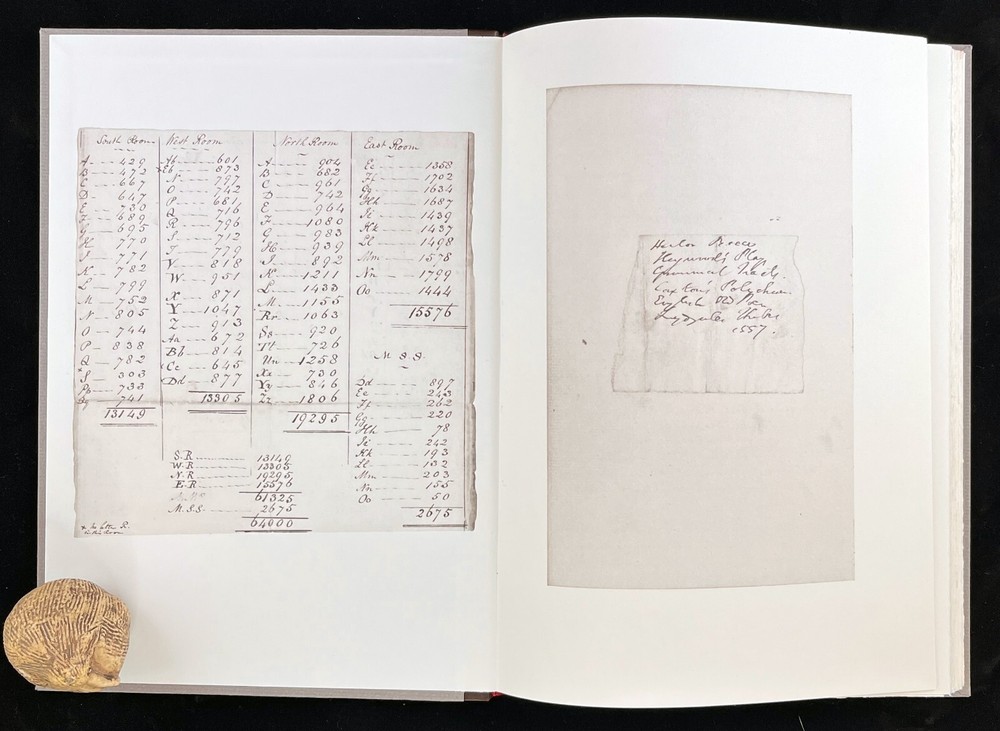 South Room
A 429
B 472
C 667
D 647
E 730
F 689
G 695
H 770
I 771
K 782
L 799
M 752
N 805
O 744
P 838
Q 782
*S 303
Pp 733
Qq 741
13149
West Room
601
873
N 797
O 742
P 681
Q 716
R 796
S 712
T 779
V 818
W 951
X 871
Y 1047
Z 913
Aa 672
Bb 814
Cc 645
Dd 877
13305
North Room
A 904
B 682
C 961
D 742
E 964
F 1080
G 983
H 939
I 892
K 1211
L 1433
M 1155
Rr 1063
Ss 920
Tt 726
Uu 1258
Xx 730
Yy 846
Zz 1806
19295
East Room
Ee 1358
Ff 1702
Gg 1634
Hh 1687
Ii 1439
Kk 1437
Ll 1498
Mm 1578
Nn 1799
Oo 1444
15576
M S S.
Dd 897
Ee 243
Ff 262
Gg 220
Hh 78
Ii 242
Kk 193
Ll 132
Mm 203
Nn 155
Oo 50
2675
S.R 13149
W.R 13305
N.R 19295
E.R 15576
61325
M.S.S. 2675
64000
* the letter R.
in this Room
Hector Boece
Heywood's Play
Grammatical Tracts.
Caxton's Polychron.
English Old Poem
Lydgate's
1557.